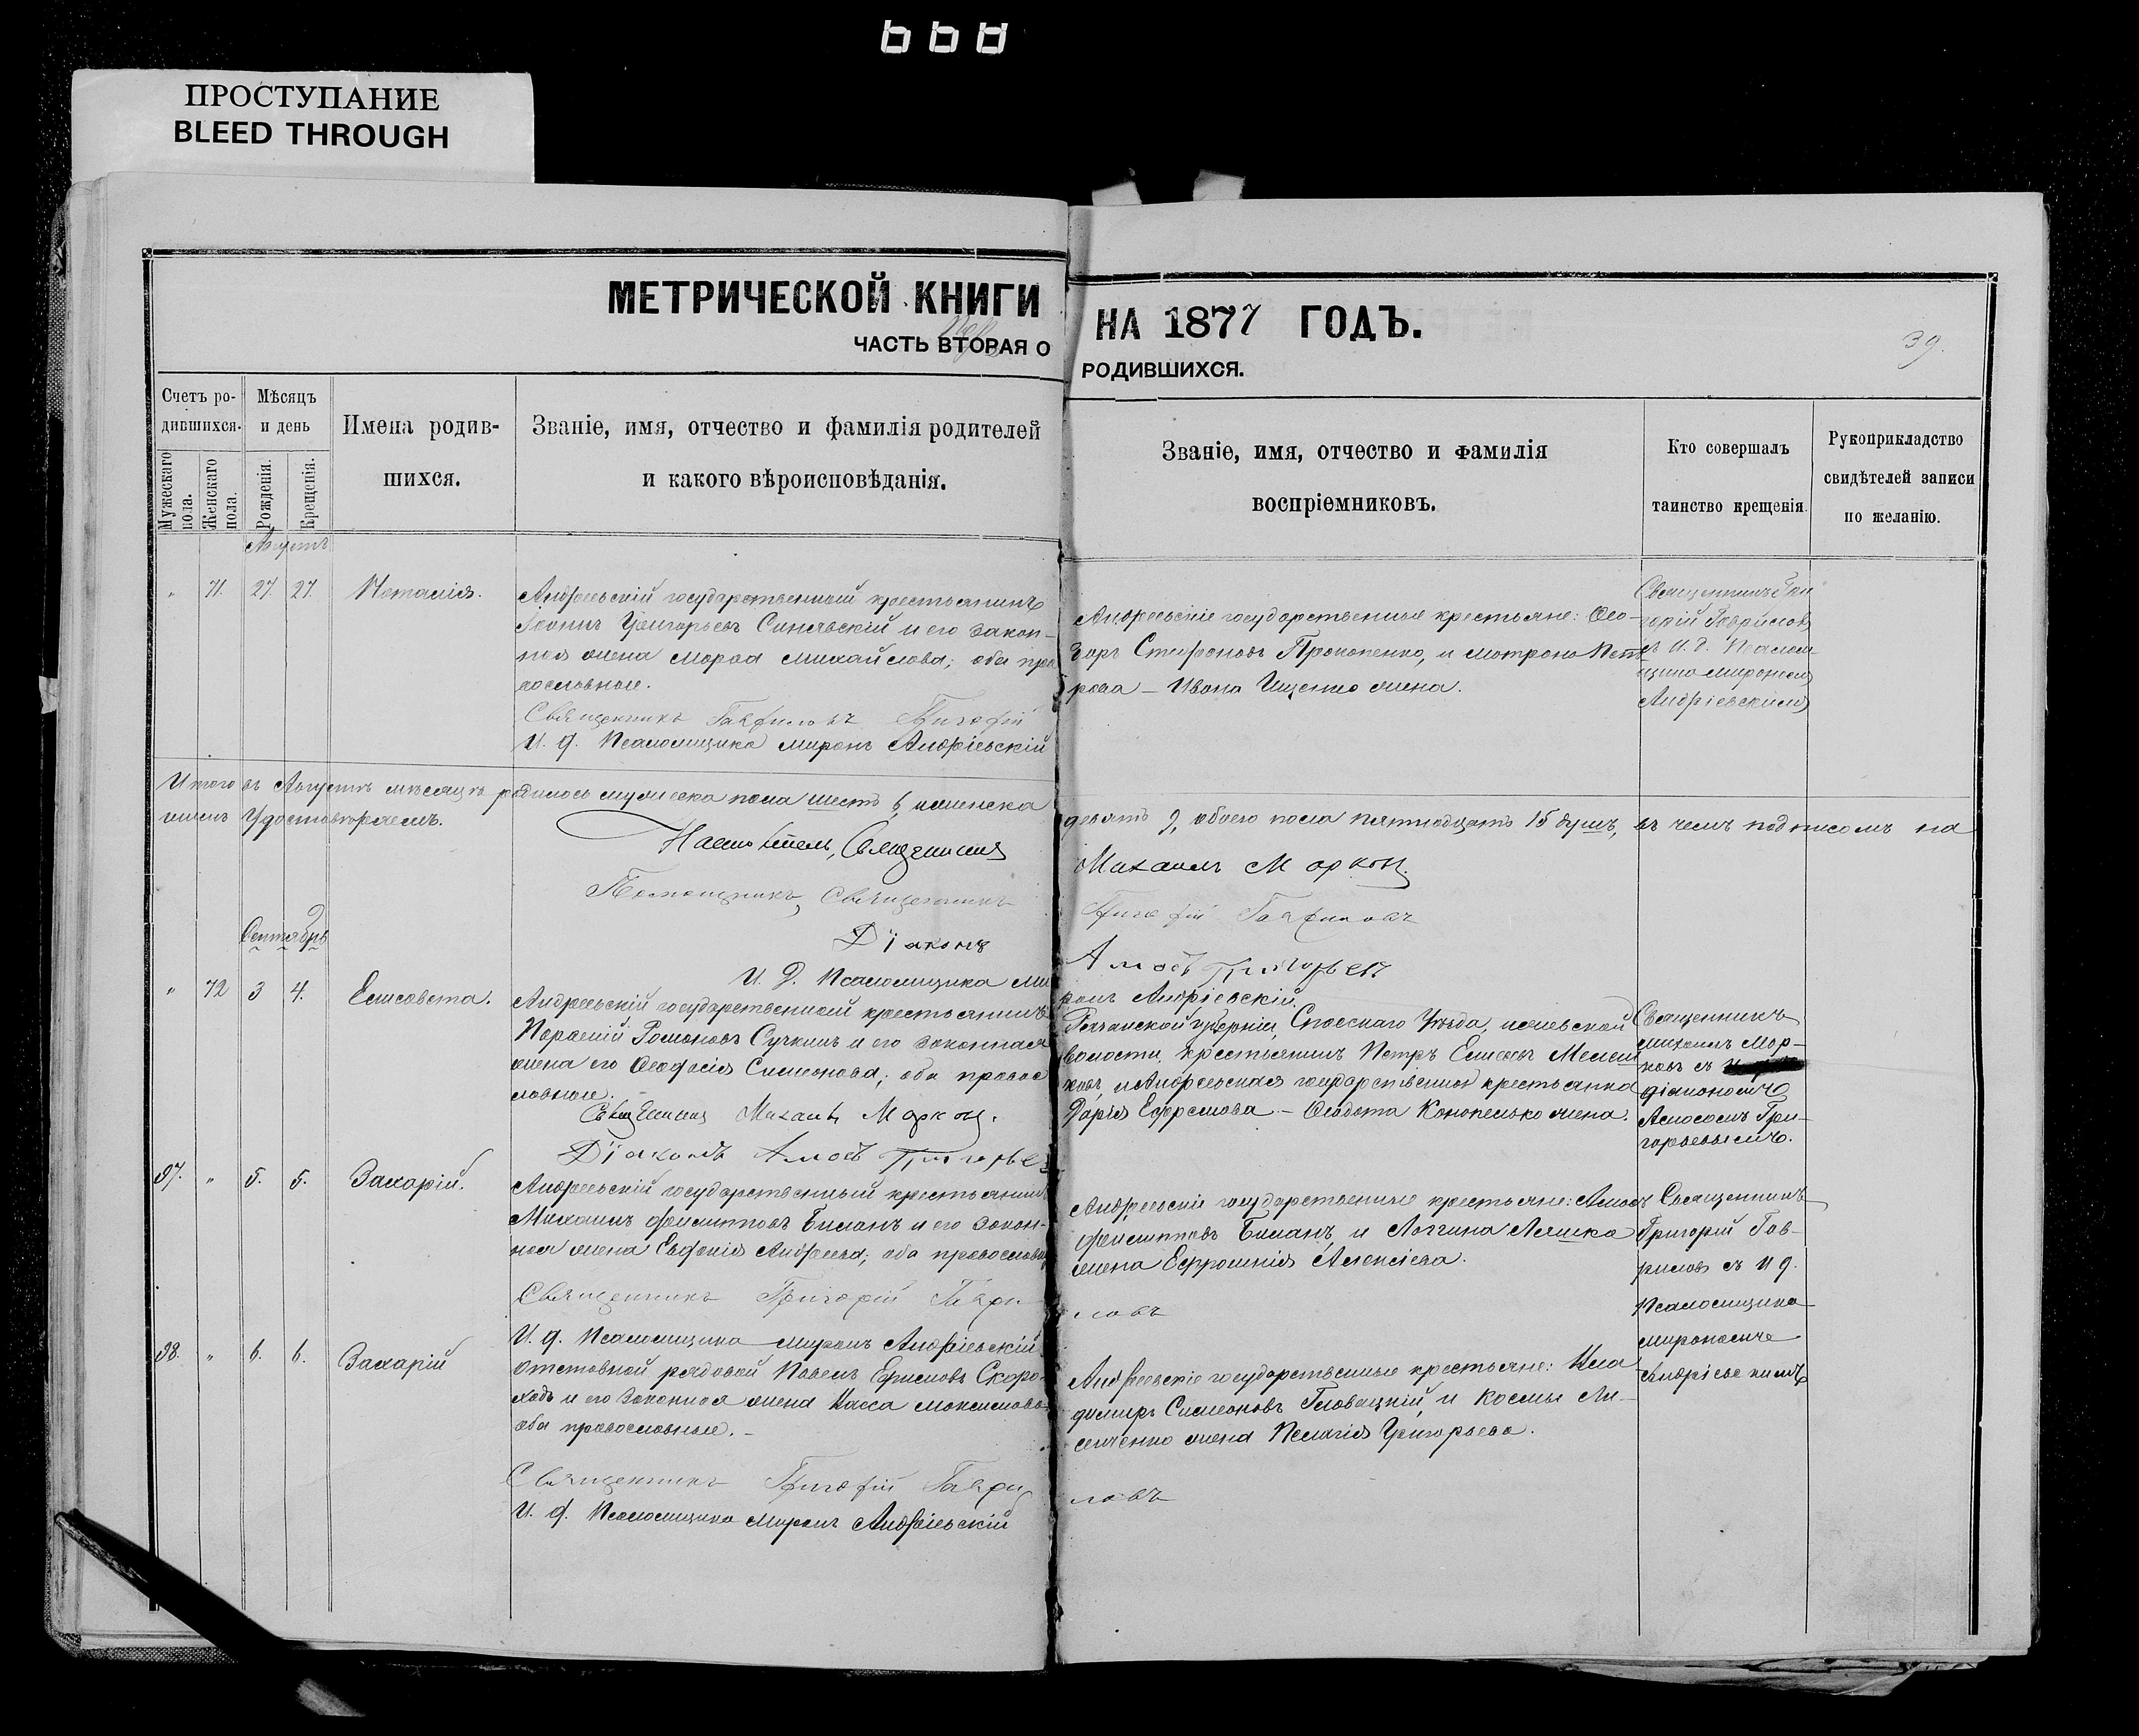 ПРОСТУПАНИЕ
BLEED THROUGH
МЕТРИЧЕСКОЙ КНИГИ НА 1877 ГОДЪ.
ЧАСТЬ ВТОРАЯ О РОДИВШИХСЯ.
39.
Счетъ ро-
дившихся.
Мужескаго пола.
Женскаго пола.
Мѣсяцъ
и день
Рожденія.
Крещенія.
Имена родив-
шихся.
Званіе, имя, отчество и фамилія родителей
и какого вѣроисповѣданія.
Званіе, имя, отчество и фамилія
воспріемниковъ.
Кто совершалъ
таинство крещенія.
Рукоприкладство
свидѣтелей записи
по желанію.
Августъ
" 71. 27. 27. Наталія.
Андреевскій государственный крестьянинъ
Григорьевъ Синявскій и его закон-
ная жена Михайлова; оба пра
вославные.
Священникъ Гавриловъ Григорій
И. д. Псаломщика Миронъ Андріевскій
Андреевскіе государственные крестьяне: Ѳео-
доръ Стефановъ Прокопенко, и Матрона Пет
рова – Ивана Ищенко жена.
Священникъ Гри
горій Гаврилов
ъ И. д. Псалом
щика Мирономъ
Андріевскимъ
Итого въ Августѣ мѣсяцѣ родилось мужеска пола шесть 6, женска девять 9, обоего пола пятнадцать 15 душъ, въ чемъ подписомъ на
шимъ Удостовѣряемъ.
Настоятель, Священникъ Михаилъ Марков.
Помощникъ, Священникъ Григорій Гавриловъ
Діаконъ Амосъ Григорьевъ
И. д. Псаломщика Ми ронъ Андріевскій.
Сентябрь
" 72 3 4. Елисавета.
Андреевскій государственный крестьянинъ
Романовъ Сучкинъ и его законная
жена его Ѳеодосія Симеонова; оба правос
лавные.
Священникъ Михаилъ Марков.
Діаконъ Амосъ Григорьевъ
губерніи, Спасскаго Уѣзда,
волости, крестьянинъ Петръ
и Андреевская государственная крестьянка
Дарія Ефремова – Ѳеодота жена.
Священникъ
Михаилъ Мар-
ковъ съ
діакономъ
Амосомъ Гри-
горьевымъ.
97. " 5. 5. Захарій.
Андреевскій государственный крестьянин
Михаилъ Биланъ и его закон-
ная жена Андреева; оба православн
Священникъ Григорій Гаври ловъ
И. д. Псаломщика Миронъ Андріевскій
Андреевскіе государственные крестьяне: Амос
Биланъ, и Логгина Ляшка
жена Ефросинія Алексіева.
Священникъ
Григорій Гав-
риловъ съ И д.
Псаломщика
Мирономъ
Андріевскимъ
98. " 6. 6. Захарій
Отставной рядовой Павелъ Скоро-
ходъ и его законная жена Васса Максимова
оба православные. –
Священникъ Григорій Гаври ловъ
И. д. Псаломщика Миронъ Андріевскій
Андреевскіе государственные крестьяне: Вла
димиръ Симеоновъ Гловацкій, и Космы Ли-
жена Пелагія Григорьева.